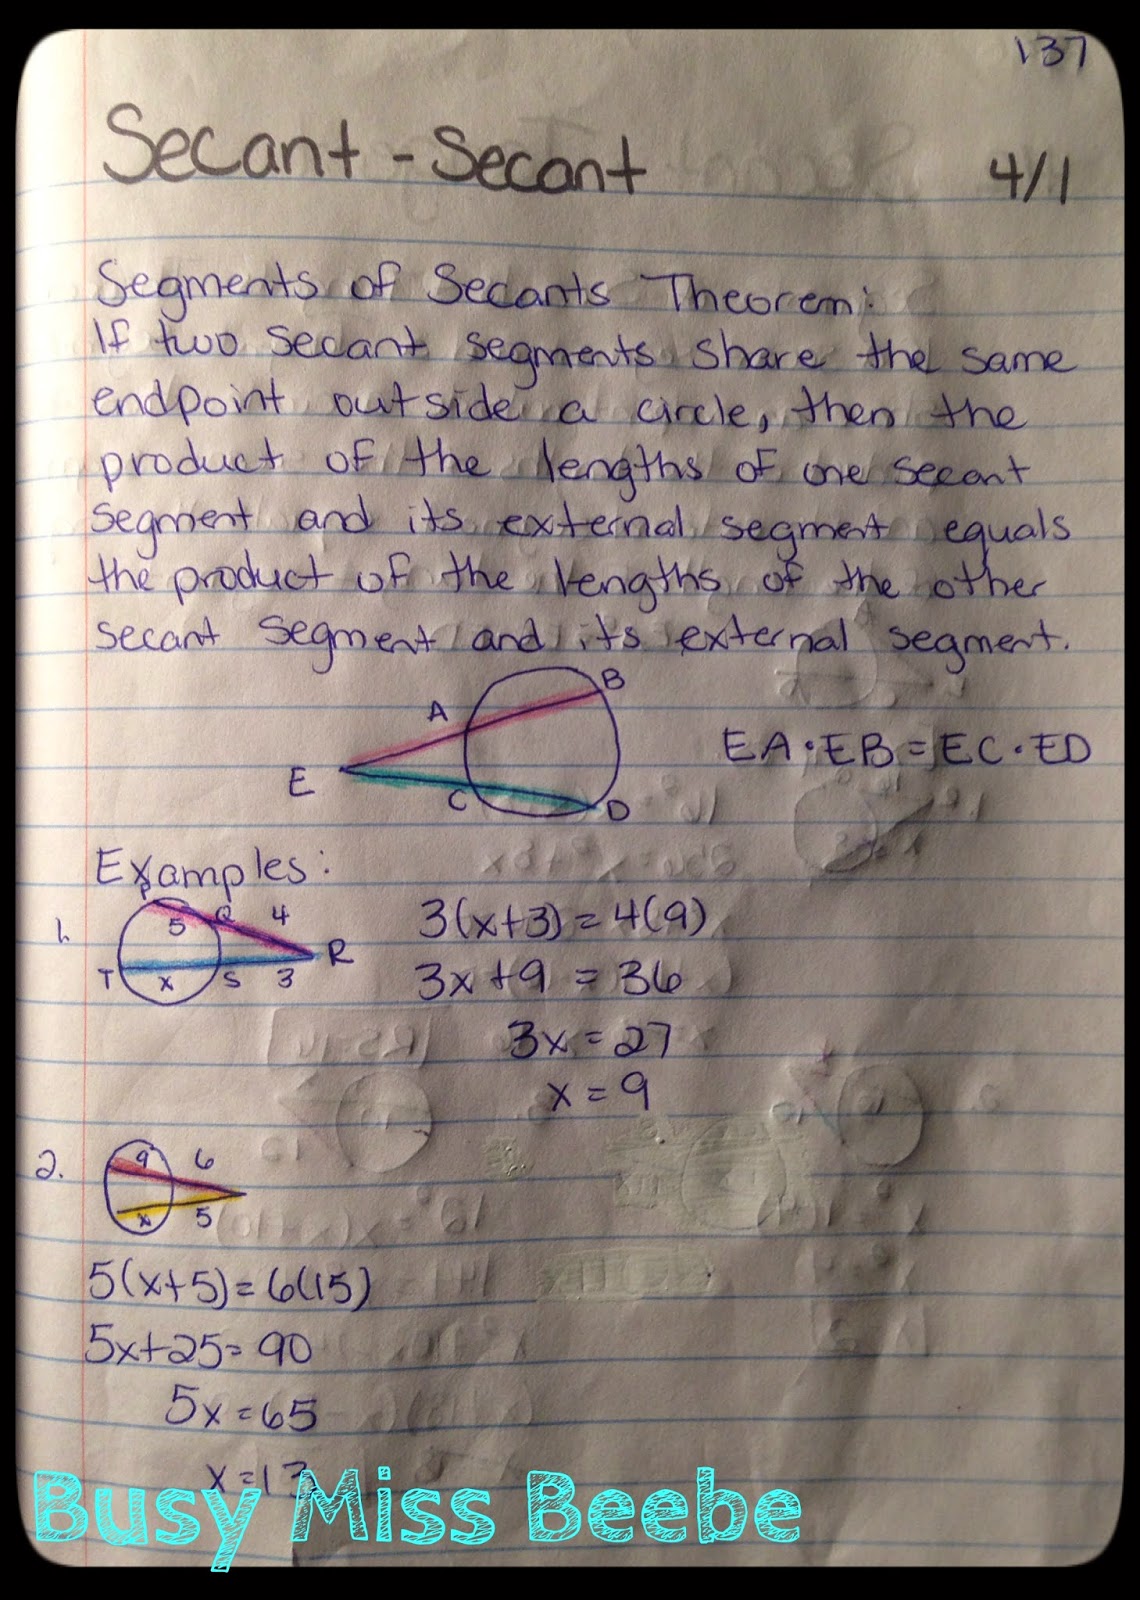 137
Secant - Secant 4/1
Segments of Secants Theorem:
If two secant segments share the same
endpoint outside a circle, then the
product of the lengths of one secant
segment and its external segment equals
the product of the lengths of the other
secant segment and its external segment.
B
A
EA · EB = EC · ED
E
C
D
Examples:
1.
P
5 Q 4
R
T x S 3
3(x+3) = 4(9)
3x + 9 = 36
3x = 27
x = 9
2.
9 6
x 5
5(x+5) = 6(15)
5x+25 = 90
5x = 65
x = 13
Busy Miss Beebe